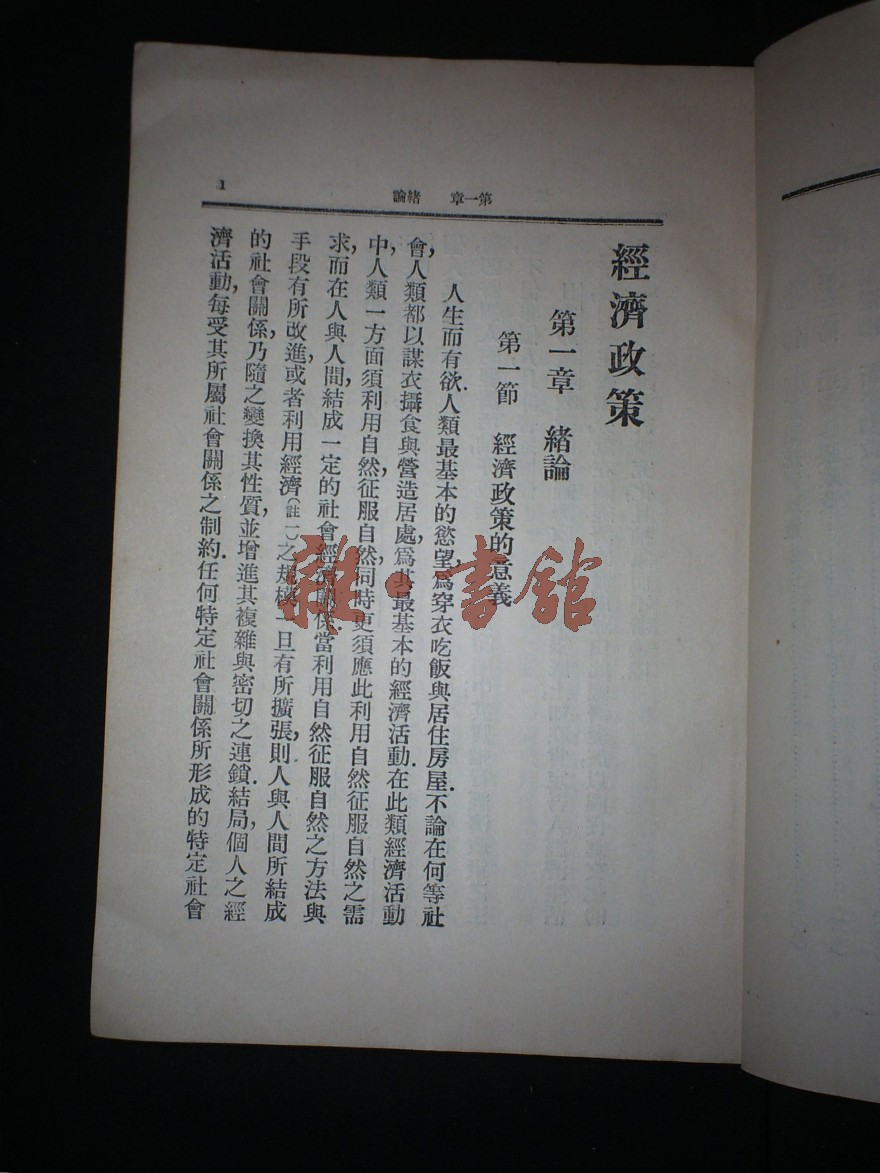 第一章　緒論
1
經濟政策
第一章　緒論
第一節　經濟政策的意義
人生而有欲.人類最基本的慾望,爲穿衣吃飯與居住房屋.不論在何等社
會,人類都以謀衣攝食與營造居處,爲其最基本的經濟活動.在此類經濟活動
中,人類一方面須利用自然征服自然,同時更須應此利用自然征服自然之需
求,而在人與人間,結成一定的社會經濟關係.當利用自然征服自然之方法與
手段有所改進,或者利用經濟(註一)之規模一旦有所擴張,則人與人間所結成
的社會關係,乃隨之變換其性質,並增進其複雜與密切之連鎖.結局,個人之經
濟活動,每受其所屬社會關係之制約.任何特定社會關係所形成的特定社會
雜·書館